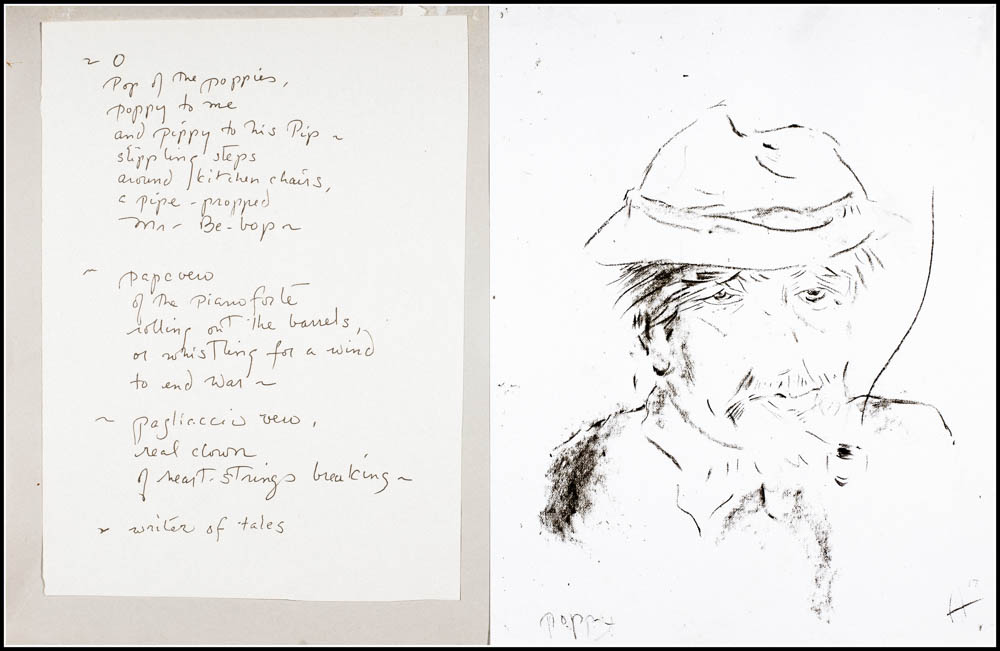 ~ O
Pop of the poppies,
poppy to me
and pippy to his Pip ~
stippling steps
around kitchen chairs,
a pipe-propped
Mr- Be-bop ~
~ papavero
of the pianoforte
rolling out the barrels,
or whistling for a wind
to end war ~
~ pagliaccio vero,
real clown
of heart-strings breaking ~
~ writer of tales
poppy